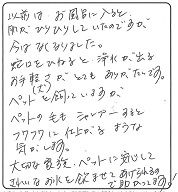 以前は、お風呂に入ると、
肌がぴりぴりしていたのですが
今はなくなりました。
蛇口をひねると、浄水が出る
お手軽さがとてもありがたいです。
ペット(犬)を飼っていますが、
ペットの毛も シャンプーすると
フワフワに仕上がる ような
気がします。
大切な家族、ペットに安心して
きれいなお水を飲ませてあげられるの
で助かってます!